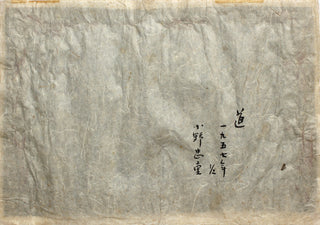 道
一九五七年
小野忠重